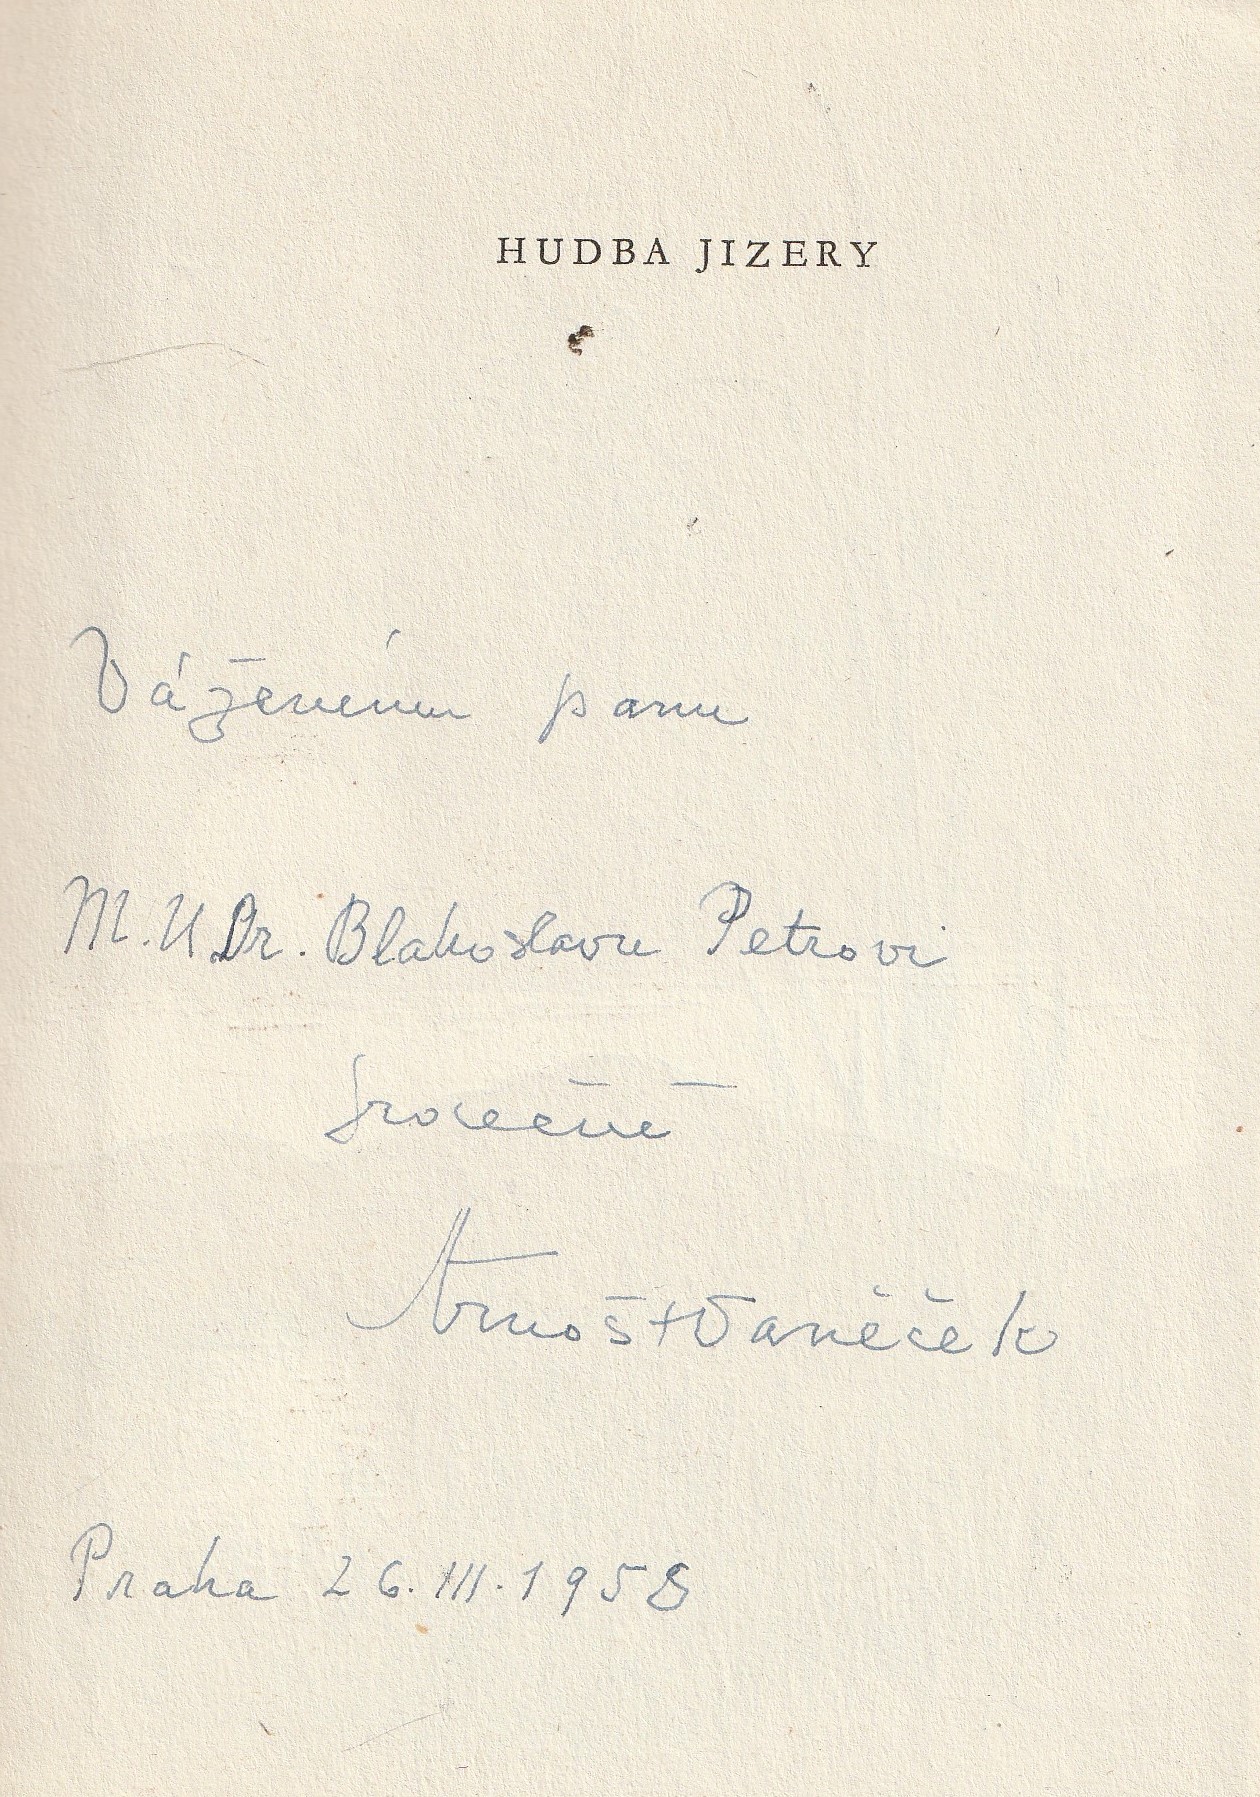 HUDBA JIZERY
Váženému panu
M.UDr. Blahoslavu Petrovi
srdečně
Arnošt Vaněček
Praha 26.III.1958